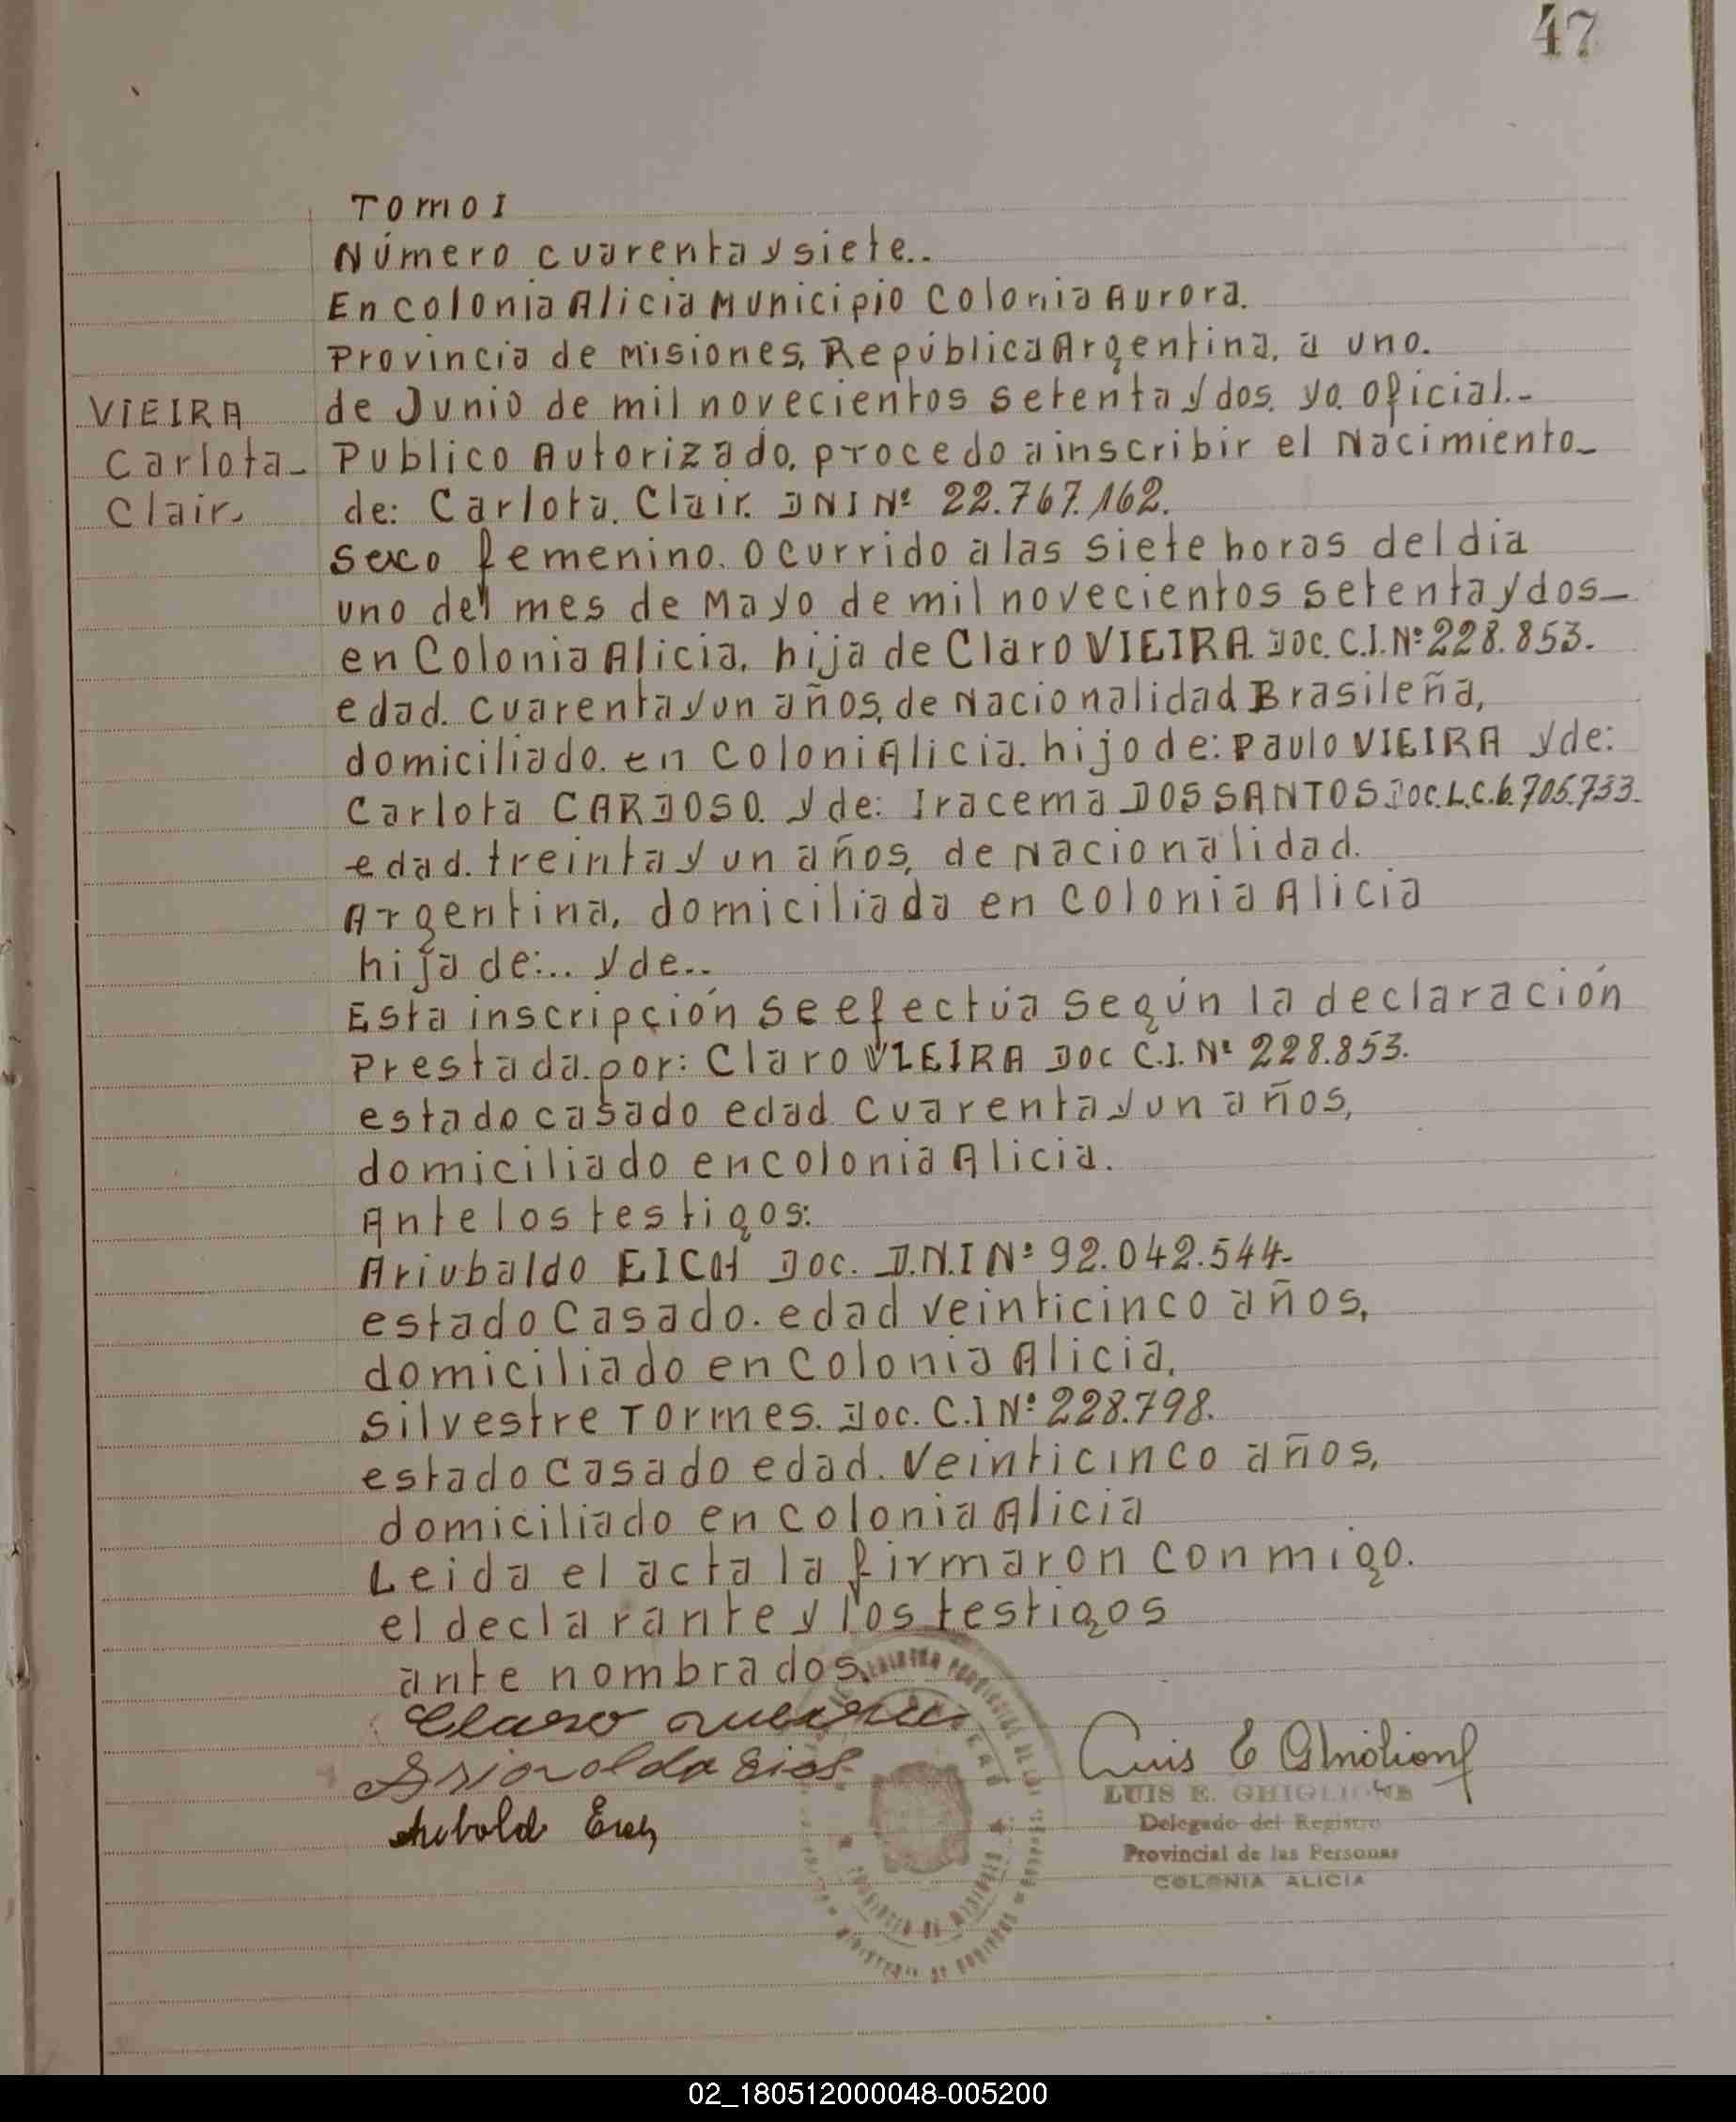 47
Tomo I
Número cuarenta y siete..
En colonia Alicia Municipio Colonia Aurora.
Provincia de Misiones, República Argentina, a uno.
VIEIRA de Junio de mil novecientos setenta y dos. yo. oficial.-
Carlota- Publico Autorizado, procedo a inscribir el Nacimiento-
Clair. de: Carlota. Clair. DNI Nº 22.767.162.
sexo femenino. ocurrido a las siete horas del dia
uno del mes de Mayo de mil novecientos setenta y dos-
en Colonia Alicia, hija de Claro VIEIRA Doc. C.I. Nº 228.853.
edad. cuarenta y un años, de Nacionalidad Brasileña,
domiciliado. en coloni Alicia. hijo de: Paulo VIEIRA y de:
Carlota CARDOSO. y de: Iracema DOS SANTOS Doc. L.C. 6.705.733.
edad. treinta y un años, de Nacionalidad.
Argentina, domiciliada en colonia Alicia
hija de:.. y de..
Esta inscripción se efectúa según la declaración
Prestada. por: Claro VIEIRA DOC C.I. Nº 228.853.
estado casado edad cuarenta y un años,
domiciliado en colonia Alicia.
Ante los testigos:
Ariubaldo EICH Doc. D.N.I Nº 92.042.544-
estado Casado. edad veinticinco años,
domiciliado en Colonia Alicia,
Silvestre Tormes. Doc. C.I Nº 228.798.
estado casado edad. veinticinco años,
domiciliado en colonia Alicia
Leida el acta la firmaron conmigo.
el declarante y los testigos
ante nombrados.
Claro
Luis E Ghiglione
LUIS E. GHIGLIONE
Delegado del Registro
Provincial de las Personas
COLONIA ALICIA
PROVINCIA DE MISIONES
MINISTERIO DE GOBIERNO
02_180512000048-005200